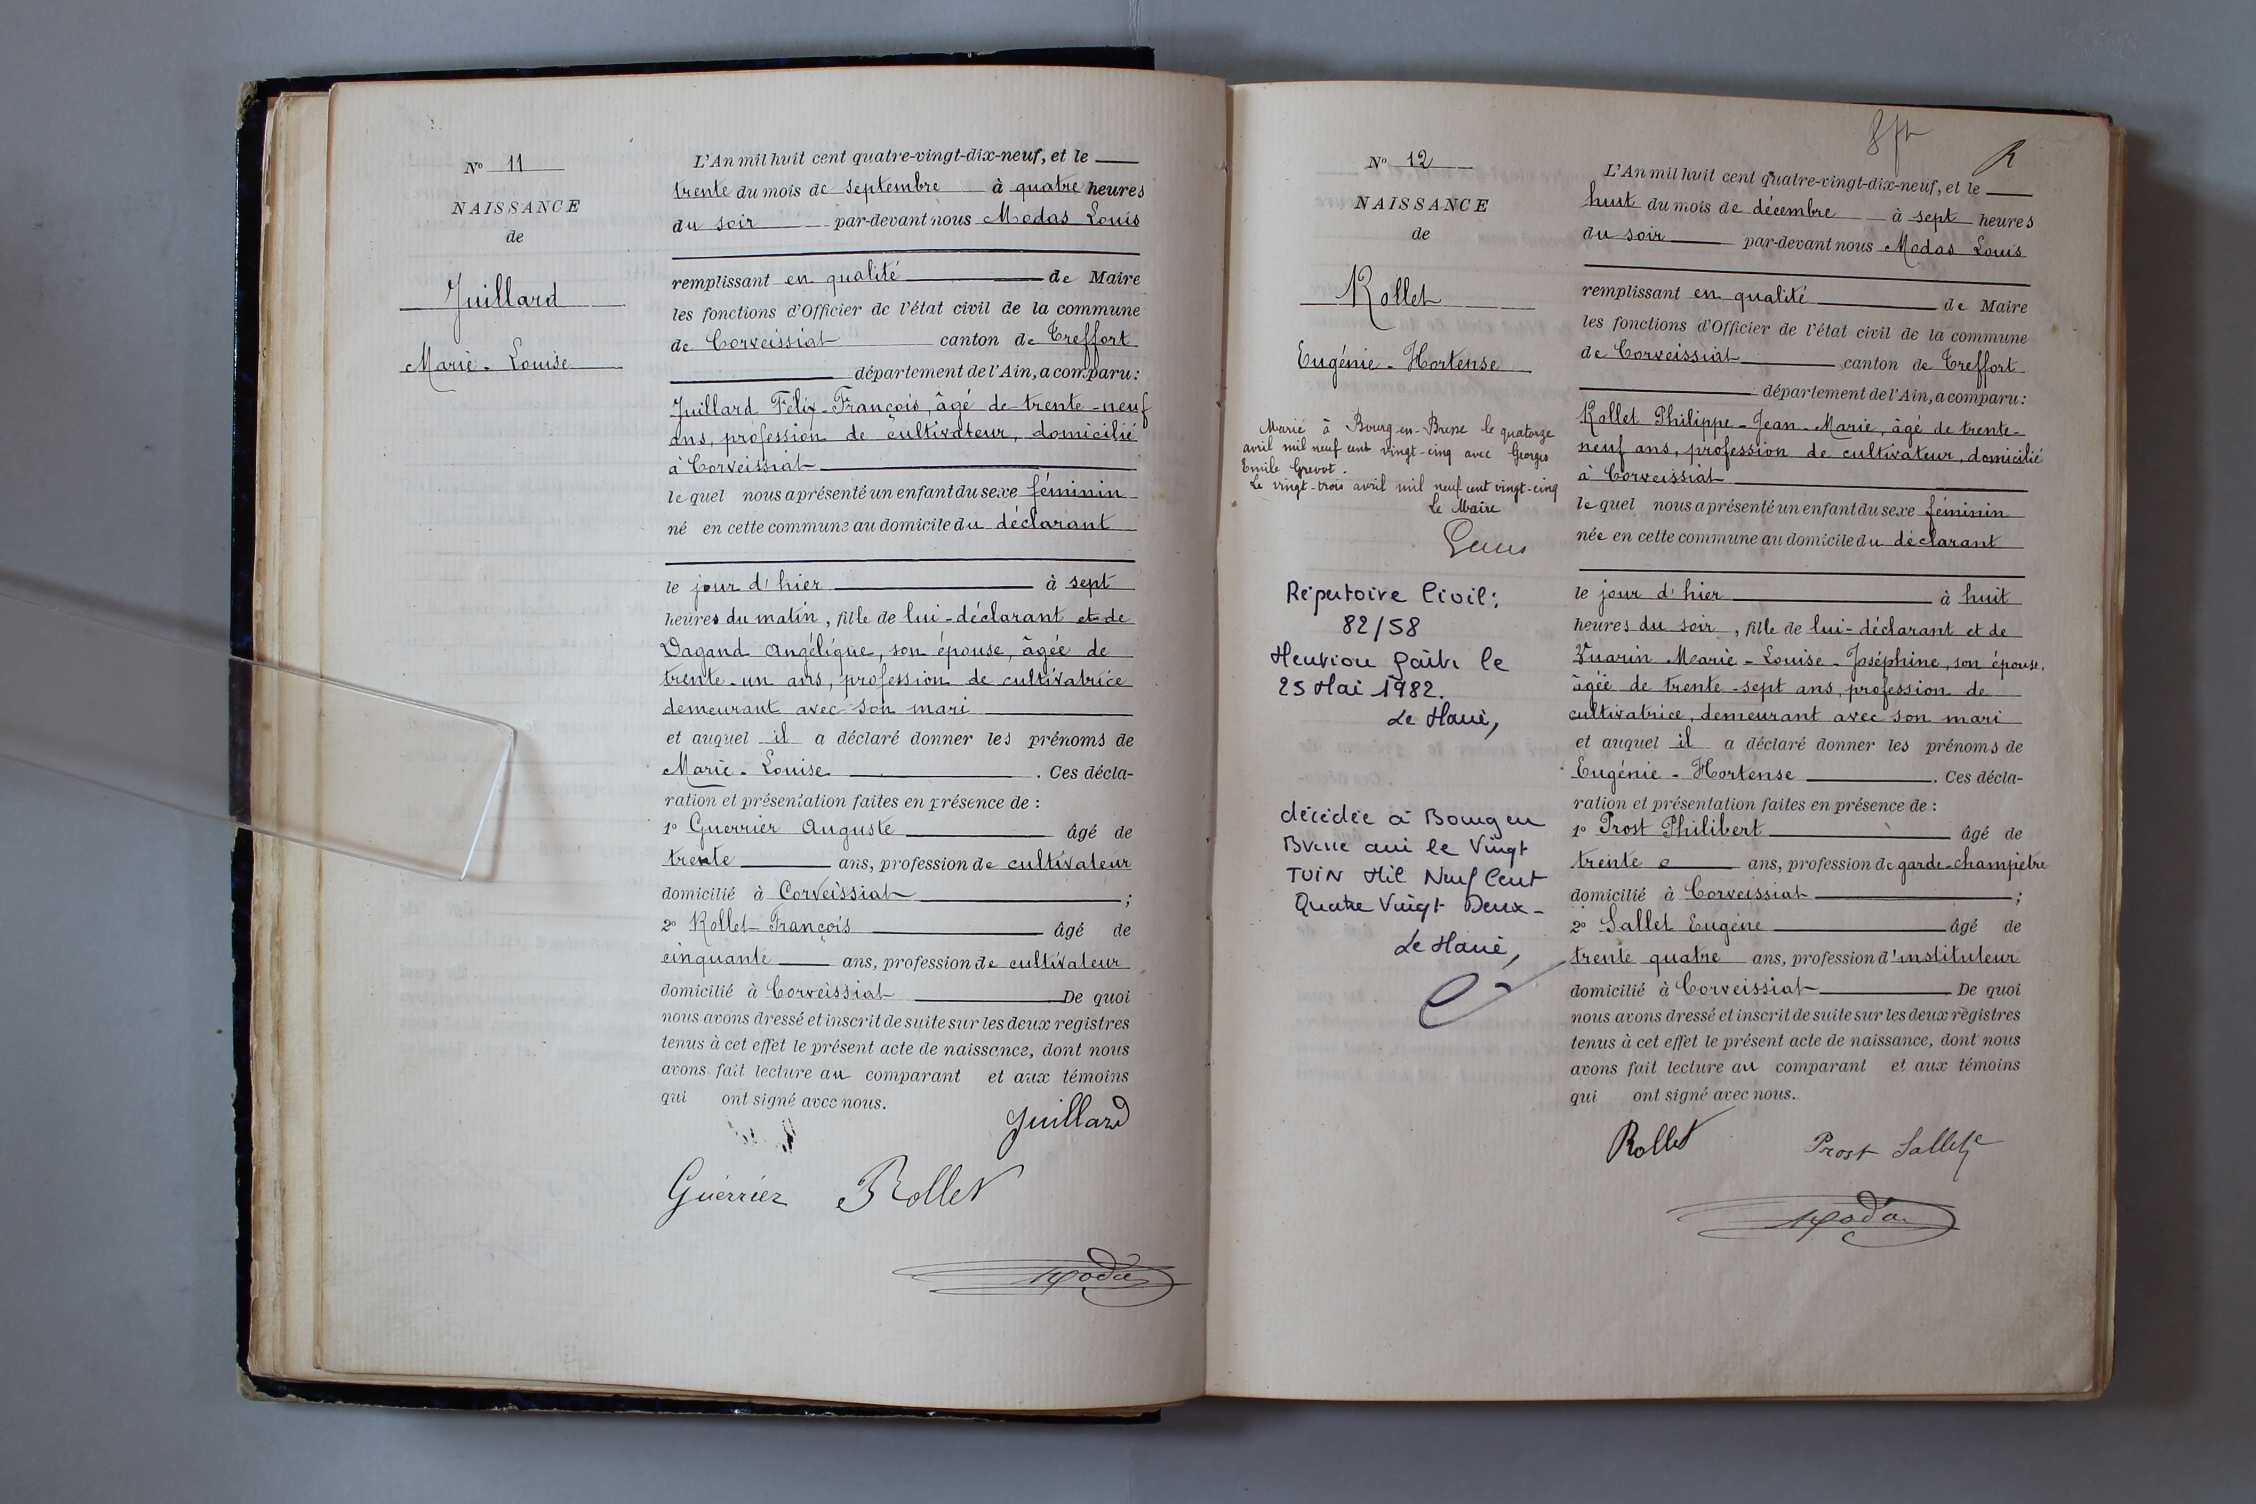 N° 11
NAISSANCE
de
Juillard
Marie-Louise
L'An mil huit cent quatre-vingt-dix-neuf, et le
trente du mois de septembre à quatre heures
du soir par-devant nous Modas Louis
remplissant en qualité de Maire
les fonctions d'Officier de l'état civil de la commune
de Corveissiat canton de Treffort
département de l'Ain, a comparu:
Juillard Félix-François, âgé de trente-neuf
ans, profession de cultivateur, domicilié
à Corveissiat
le quel nous a présenté un enfant du sexe féminin
né en cette commune au domicile du déclarant
le jour d'hier à sept
heures du matin, fille de lui-déclarant et de
Vagand Angélique, son épouse, âgée de
trente-un ans, profession de cultivatrice
demeurant avec son mari
et auquel il a déclaré donner les prénoms de
Marie-Louise. Ces décla-
ration et présentation faites en présence de :
1° Guerrier Auguste âgé de
trente ans, profession de cultivateur
domicilié à Corveissiat ;
2° Rollet François âgé de
cinquante ans, profession de cultivateur
domicilié à Corveissiat De quoi
nous avons dressé et inscrit de suite sur les deux registres
tenus à cet effet le présent acte de naissance, dont nous
avons fait lecture au comparant et aux témoins
qui ont signé avec nous.
Juillard
Guerrier Rollet
Modas
R
N° 12
NAISSANCE
de
Rollet
Eugénie-Hortense
Marié à Bourg-en-Bresse le quatorze
avril mil neuf cent vingt-cinq avec Georges
Emile Grevot.
Le vingt-trois avril mil neuf cent vingt-cinq
Le Maire
Répertoire Civil:
82/58
Mention faite le
25 Mai 1982.
Le Maire,
décédée à Bourg en
Bresse ain le Vingt
JUIN Mil Neuf Cent
Quatre Vingt Deux-
Le Maire,
L'An mil huit cent quatre-vingt-dix-neuf, et le
huit du mois de décembre à sept heures
du soir par-devant nous Modas Louis
remplissant en qualité de Maire
les fonctions d'Officier de l'état civil de la commune
de Corveissiat canton de Treffort
département de l'Ain, a comparu:
Rollet Philippe-Jean-Marie, âgé de trente-
neuf ans, profession de cultivateur, domicilié
à Corveissiat
le quel nous a présenté un enfant du sexe féminin
née en cette commune au domicile du déclarant
le jour d'hier à huit
heures du soir, fille de lui-déclarant et de
Vuarin Marie-Louise-Joséphine, son épouse,
âgée de trente-sept ans, profession de
cultivatrice, demeurant avec son mari
et auquel il a déclaré donner les prénoms de
Eugénie-Hortense. Ces décla-
ration et présentation faites en présence de :
1° Prost Philibert âgé de
trente ans, profession de garde-champêtre
domicilié à Corveissiat ;
2° Sallet Eugène âgé de
trente quatre ans, profession d'instituteur
domicilié à Corveissiat De quoi
nous avons dressé et inscrit de suite sur les deux registres
tenus à cet effet le présent acte de naissance, dont nous
avons fait lecture au comparant et aux témoins
qui ont signé avec nous.
Rollet Prost Sallet
Modas